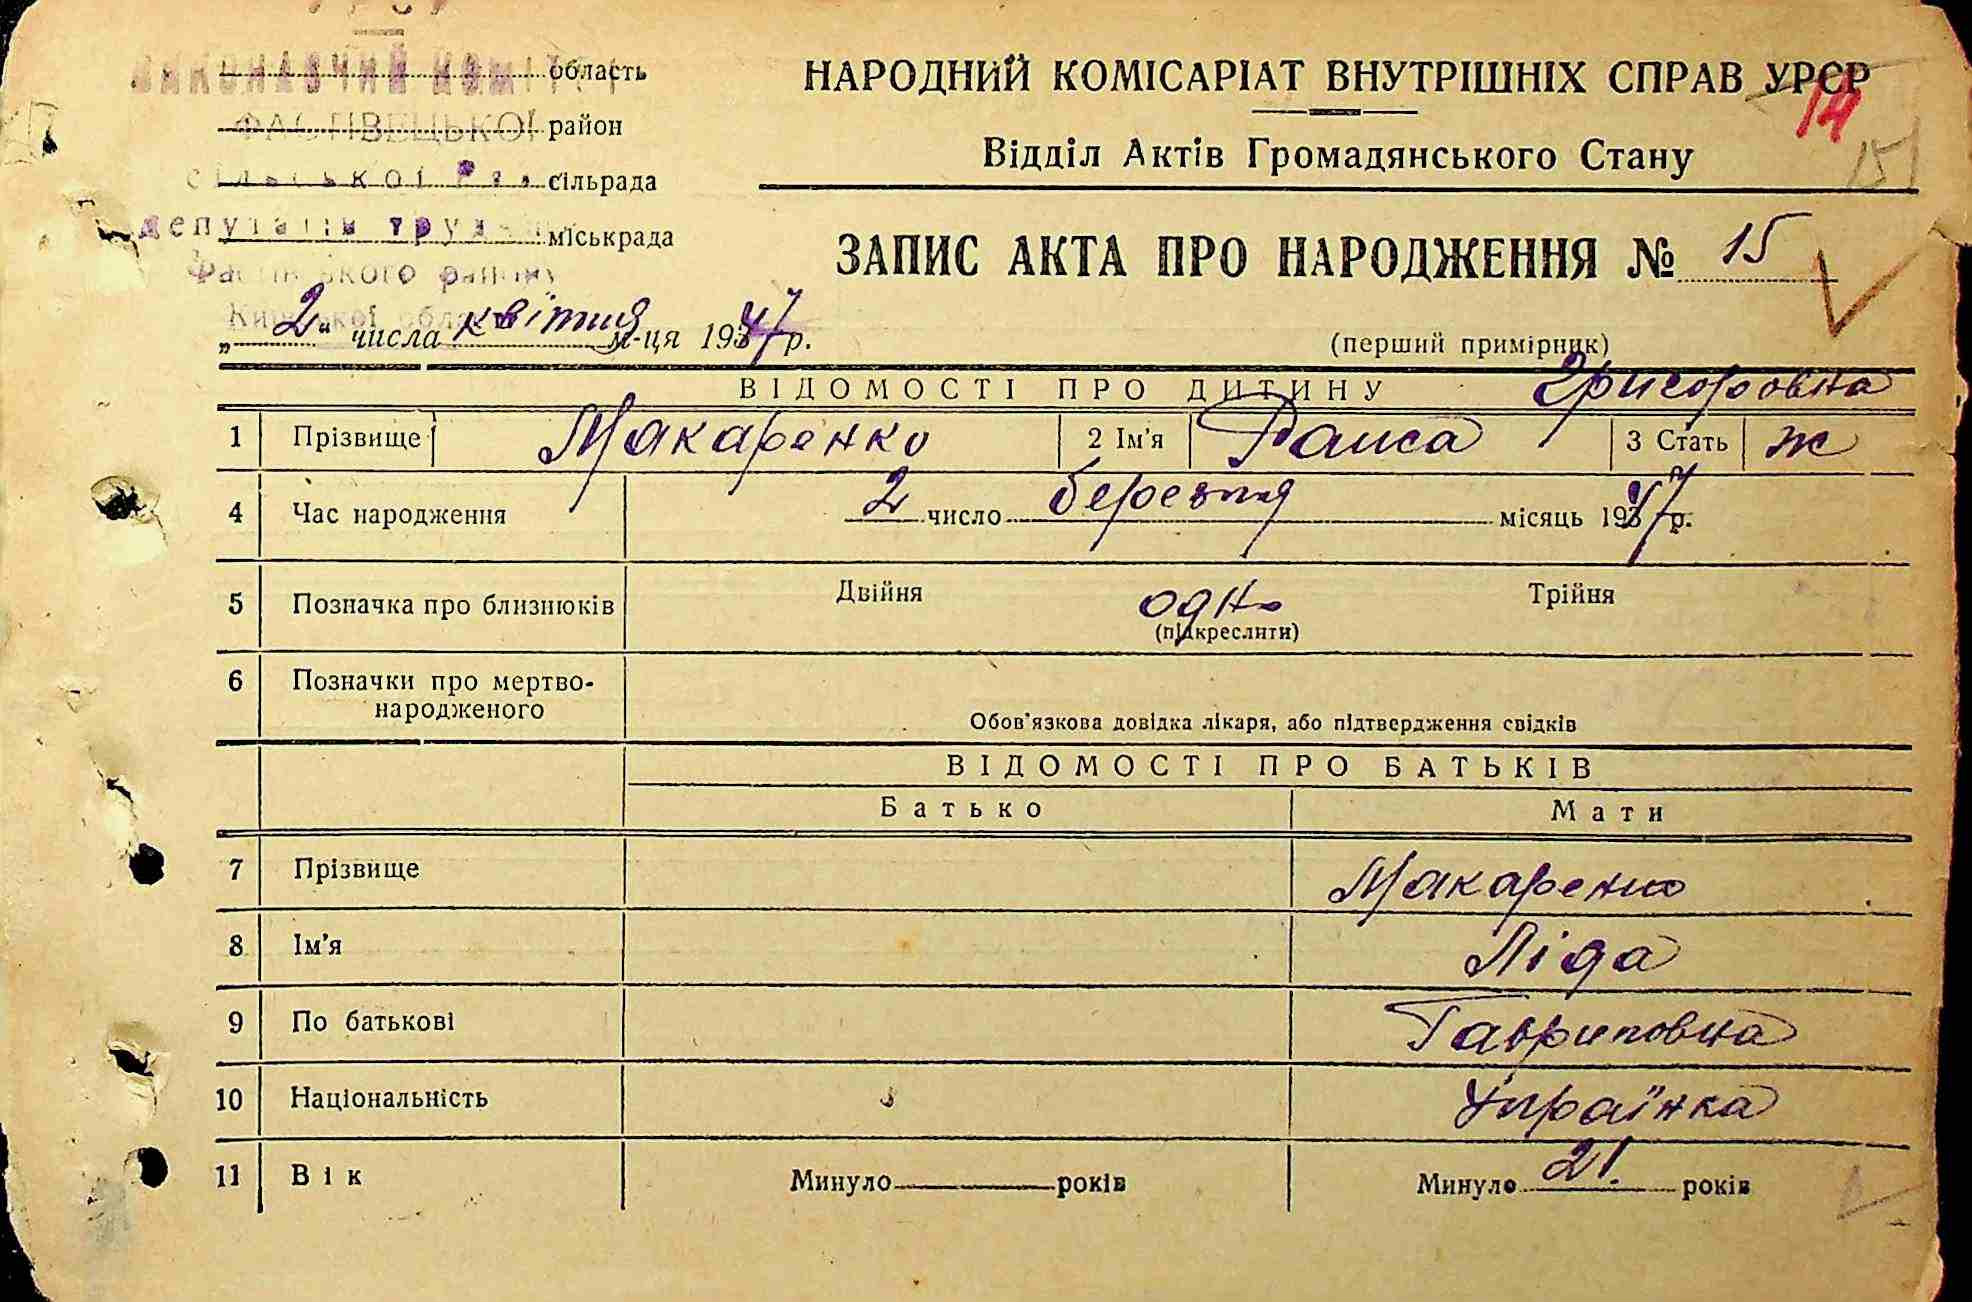 УРСР
ВИКОНАВЧИЙ КОМІТЕТ область
ФАСТІВЕЦЬКОЇ район
сільської Ради сільрада
депутатів труд міськрада
Фастівського району
Київської обл
НАРОДНИЙ КОМІСАРІАТ ВНУТРІШНІХ СПРАВ УРСР
14
Відділ Актів Громадянського Стану
15
ЗАПИС АКТА ПРО НАРОДЖЕННЯ № 15
„2" числа квітня м-ця 1947 р.
(перший примірник)
ВІДОМОСТІ ПРО ДИТИНУ Григоровна
1 Прізвище Макаренко 2 Ім'я Раиса 3 Стать ж
4 Час народження 2 число березня місяць 1947 р.
5 Позначка про близнюків Двійня одно Трійня
(підкреслити)
6 Позначки про мертво-
народженого
Обов'язкова довідка лікаря, або підтвердження свідків
ВІДОМОСТІ ПРО БАТЬКІВ
Батько Мати
7 Прізвище Макаренко
8 Ім'я Ліда
9 По батькові Гавриловна
10 Національність Українка
11 Вік Минуло років Минуло 21. років